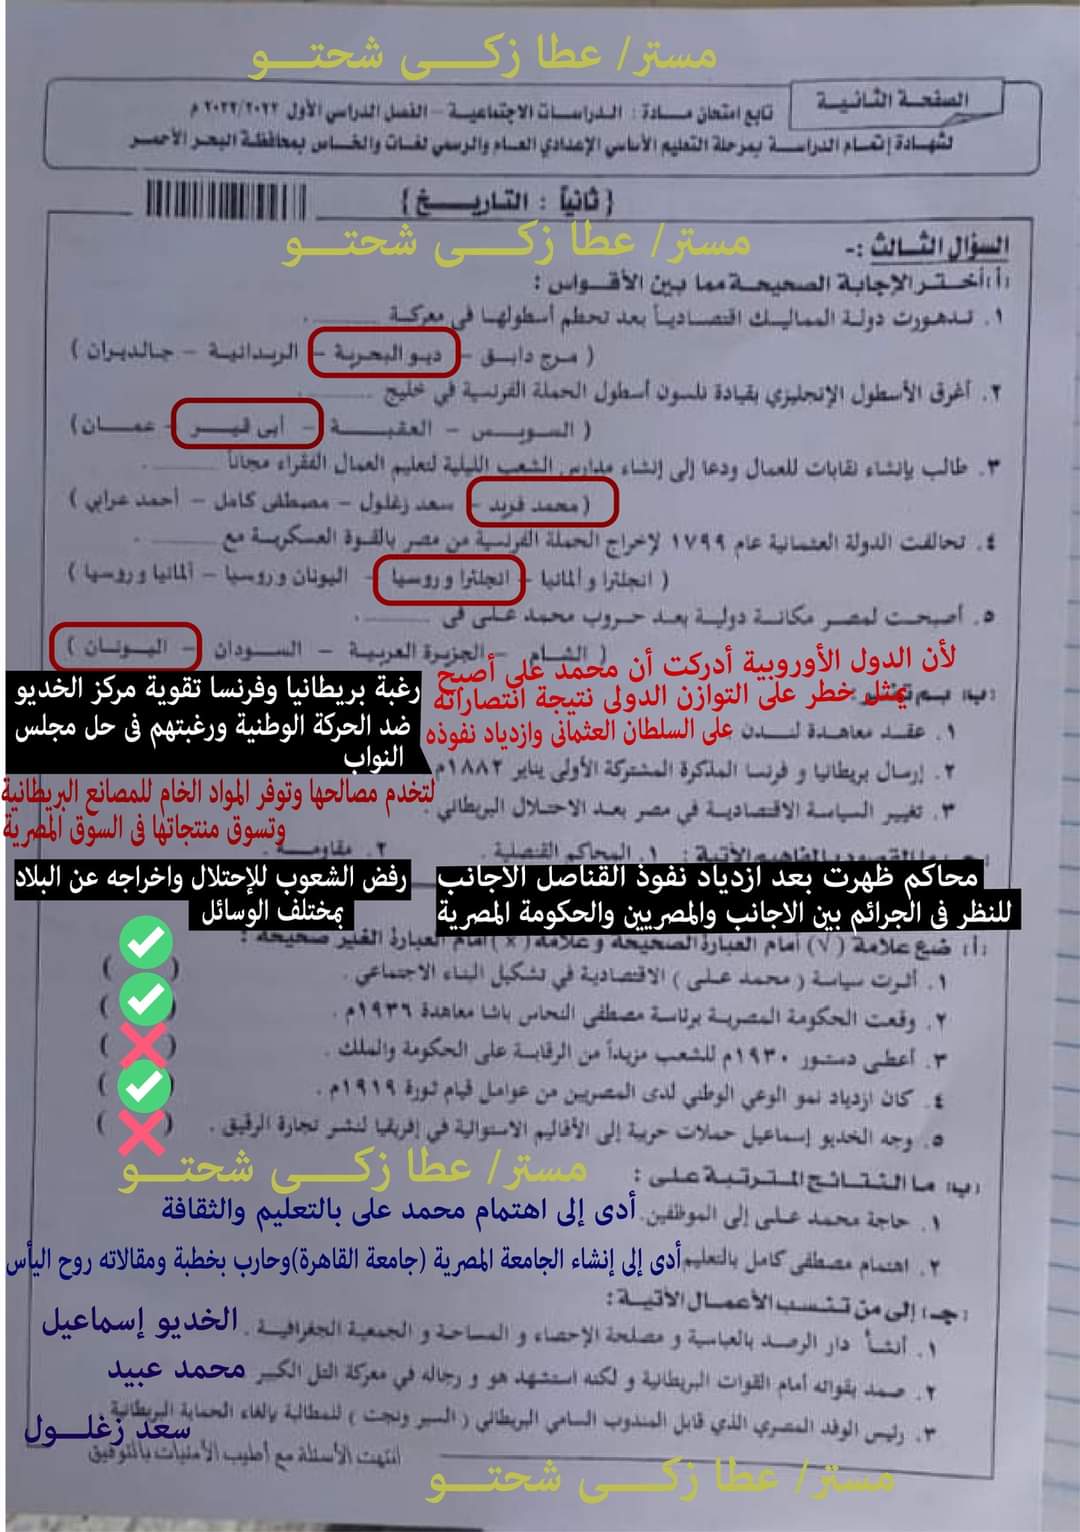 مستر/ عطا زكـــى شحتـــو
الصفحة الثانية
تابع امتحان مــادة : الـدراسـات الاجتماعيـة – الفصل الدراسي الأول ٢٠٢٢/٢٠٢٣ م
لشهادة إتمام الدراسـة بمرحلة التعليم الأساسي الإعدادي العـام والرسمي لغات والخـاص بمحافظـة البحـر الأحمـر
{ ثانياً : التاريــخ }
مستر/ عطا زكـــى شحتـــو
السؤال الثـالـث :-
(أ) اختـر الإجابة الصحيحـة ممـا بـين الأقـواس :
١. تـدهـورت دولـة المماليـك اقتصـاديـاً بعـد تحطـم أسطولهـا في معركـة ........ .
( مـرج دابـق – ديـو البحـرية – الريـدانيـة – جـالـديـران )
٢. أغرق الأسطول الإنجليزي بقيادة نلسون أسطول الحملة الفرنسية في خليج ........ .
( السـويـس – العقبـة – أبى قيـر – عمـان )
٣. طالب بإنشاء نقابات للعمال ودعا إلى إنشاء مدارس الشعب الليلية لتعليم العمال الفقراء مجاناً ........ .
( محمد فريد – سعد زغلول – مصطفى كامل – أحمد عرابي )
٤. تحالفت الدولة العثمانية عام ١٧٩٩ لإخراج الحملة الفرنسية من مصر بالقوة العسكريـة مع ........ .
( انجلترا و ألمانيا – انجلترا و روسيا – اليونان و روسيا – ألمانيا و روسيا )
٥. أصبحـت لمصـر مكـانـة دوليـة بعـد حـروب محمـد عـلـى فى ........ .
( الشـام – الجزيرة العربيـة – السـودان – اليـونـان )
لأن الدول الأوروبية أدركت أن محمد على أصبح
(ب) بـم تفسر :
يمثل خطر على التوازن الدولى نتيجة انتصاراته
١. عقـد معاهدة لنـدن
على السلطان العثمانى وازدياد نفوذه
رغبة بريطانيا وفرنسا تقوية مركز الخديو
ضد الحركة الوطنية ورغبتهم فى حل مجلس
النواب
٢. إرسال بريطانيا و فرنسا المذكرة المشتركة الأولى يناير ١٨٨٢م
لتخدم مصالحها وتوفر المواد الخام للمصانع البريطانية
وتسوق منتجاتها فى السوق المصرية
٣. تغيير السياسة الاقتصادية في مصر بعـد الاحتلال البريطاني .
١. المحاكم القنصلية . ٢. مقاومـة .
محاكم ظهرت بعد ازدياد نفوذ القناصل الأجانب
للنظر فى الجرائم بين الاجانب والمصريين والحكومة المصرية
رفض الشعوب للإحتلال واخراجه عن البلاد
بمختلف الوسائل
(أ) ضـع علامة ( √ ) أمام العبارة الصحيحـة و علامة ( × ) أمام العبارة الغير صحيحة :
١. أثـرت سياسة ( محمد عـلـى ) الاقتصادية في تشكيل البناء الاجتماعي . ( )
٢. وقعت الحكومة المصرية برئاسة مصطفى النحاس باشا معاهدة ١٩٣٦م . ( )
٣. أعطى دستـور ١٩٣٠م للشعب مزيداً من الرقابة على الحكومة والملك . ( )
٤. كان ازدياد نمو الوعي الوطني لدى المصريين من عوامل قيام ثورة ١٩١٩م . ( )
٥. وجه الخديو إسماعيل حملات حربية إلى الأقاليم الاستوائية في إفريقيا لنشر تجارة الرقيق . ( )
مستر/ عطا زكـــى شحتـــو
(ب) مـا النتـائج المـترتبـة علـى :
١. حاجة محمد علـى إلى الموظفين. أدى إلى اهتمام محمد على بالتعليم والثقافة
٢. اهتمام مصطفى كامل بالتعليم أدى إلى إنشاء الجامعة المصرية (جامعة القاهرة)وحارب بخطبة ومقالاته روح اليأس
(جـ) إلى من تنسـب الأعمـال الآتيـة :
١. أنشـأ دار الرصد بالعباسية و مصلحة الإحصاء و المساحة و الجمعية الجغرافيـة . الخديو إسماعيل
٢. صمد بقواته أمام القوات البريطانية و لكنه استشهد هو و رجاله في معركة التل الكبير محمد عبيد
٣. رئيس الوفد المصري الذي قابل المندوب السامي البريطاني ( السير ونجت ) للمطالبة بإلغاء الحماية البريطانية
سعد زغلـــول
انتهت الأسئلة مع أطيب الأمنيات بالتوفيق
مستر/ عطا زكـــى شحتـــو